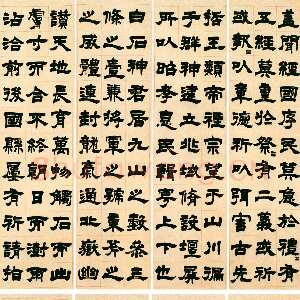 蓋聞經國序民莫急於禮〻有
五經莫重於祭〻有二義或祈
或報〻以章德祈以弭害古先
哲王類帝禋宗望于山川徧
于群神建立兆域脩設壇屏
所以昭孝息民輯寧上下也
白石神君居九山之數參三
條之壹兼將軍之號秉斧鉞
之威體連封龍氣通北嶽幽
讚天地長育萬物觸石而出
膚寸而合不終朝日而澍雨
沾洽前後國縣屢有祈請指